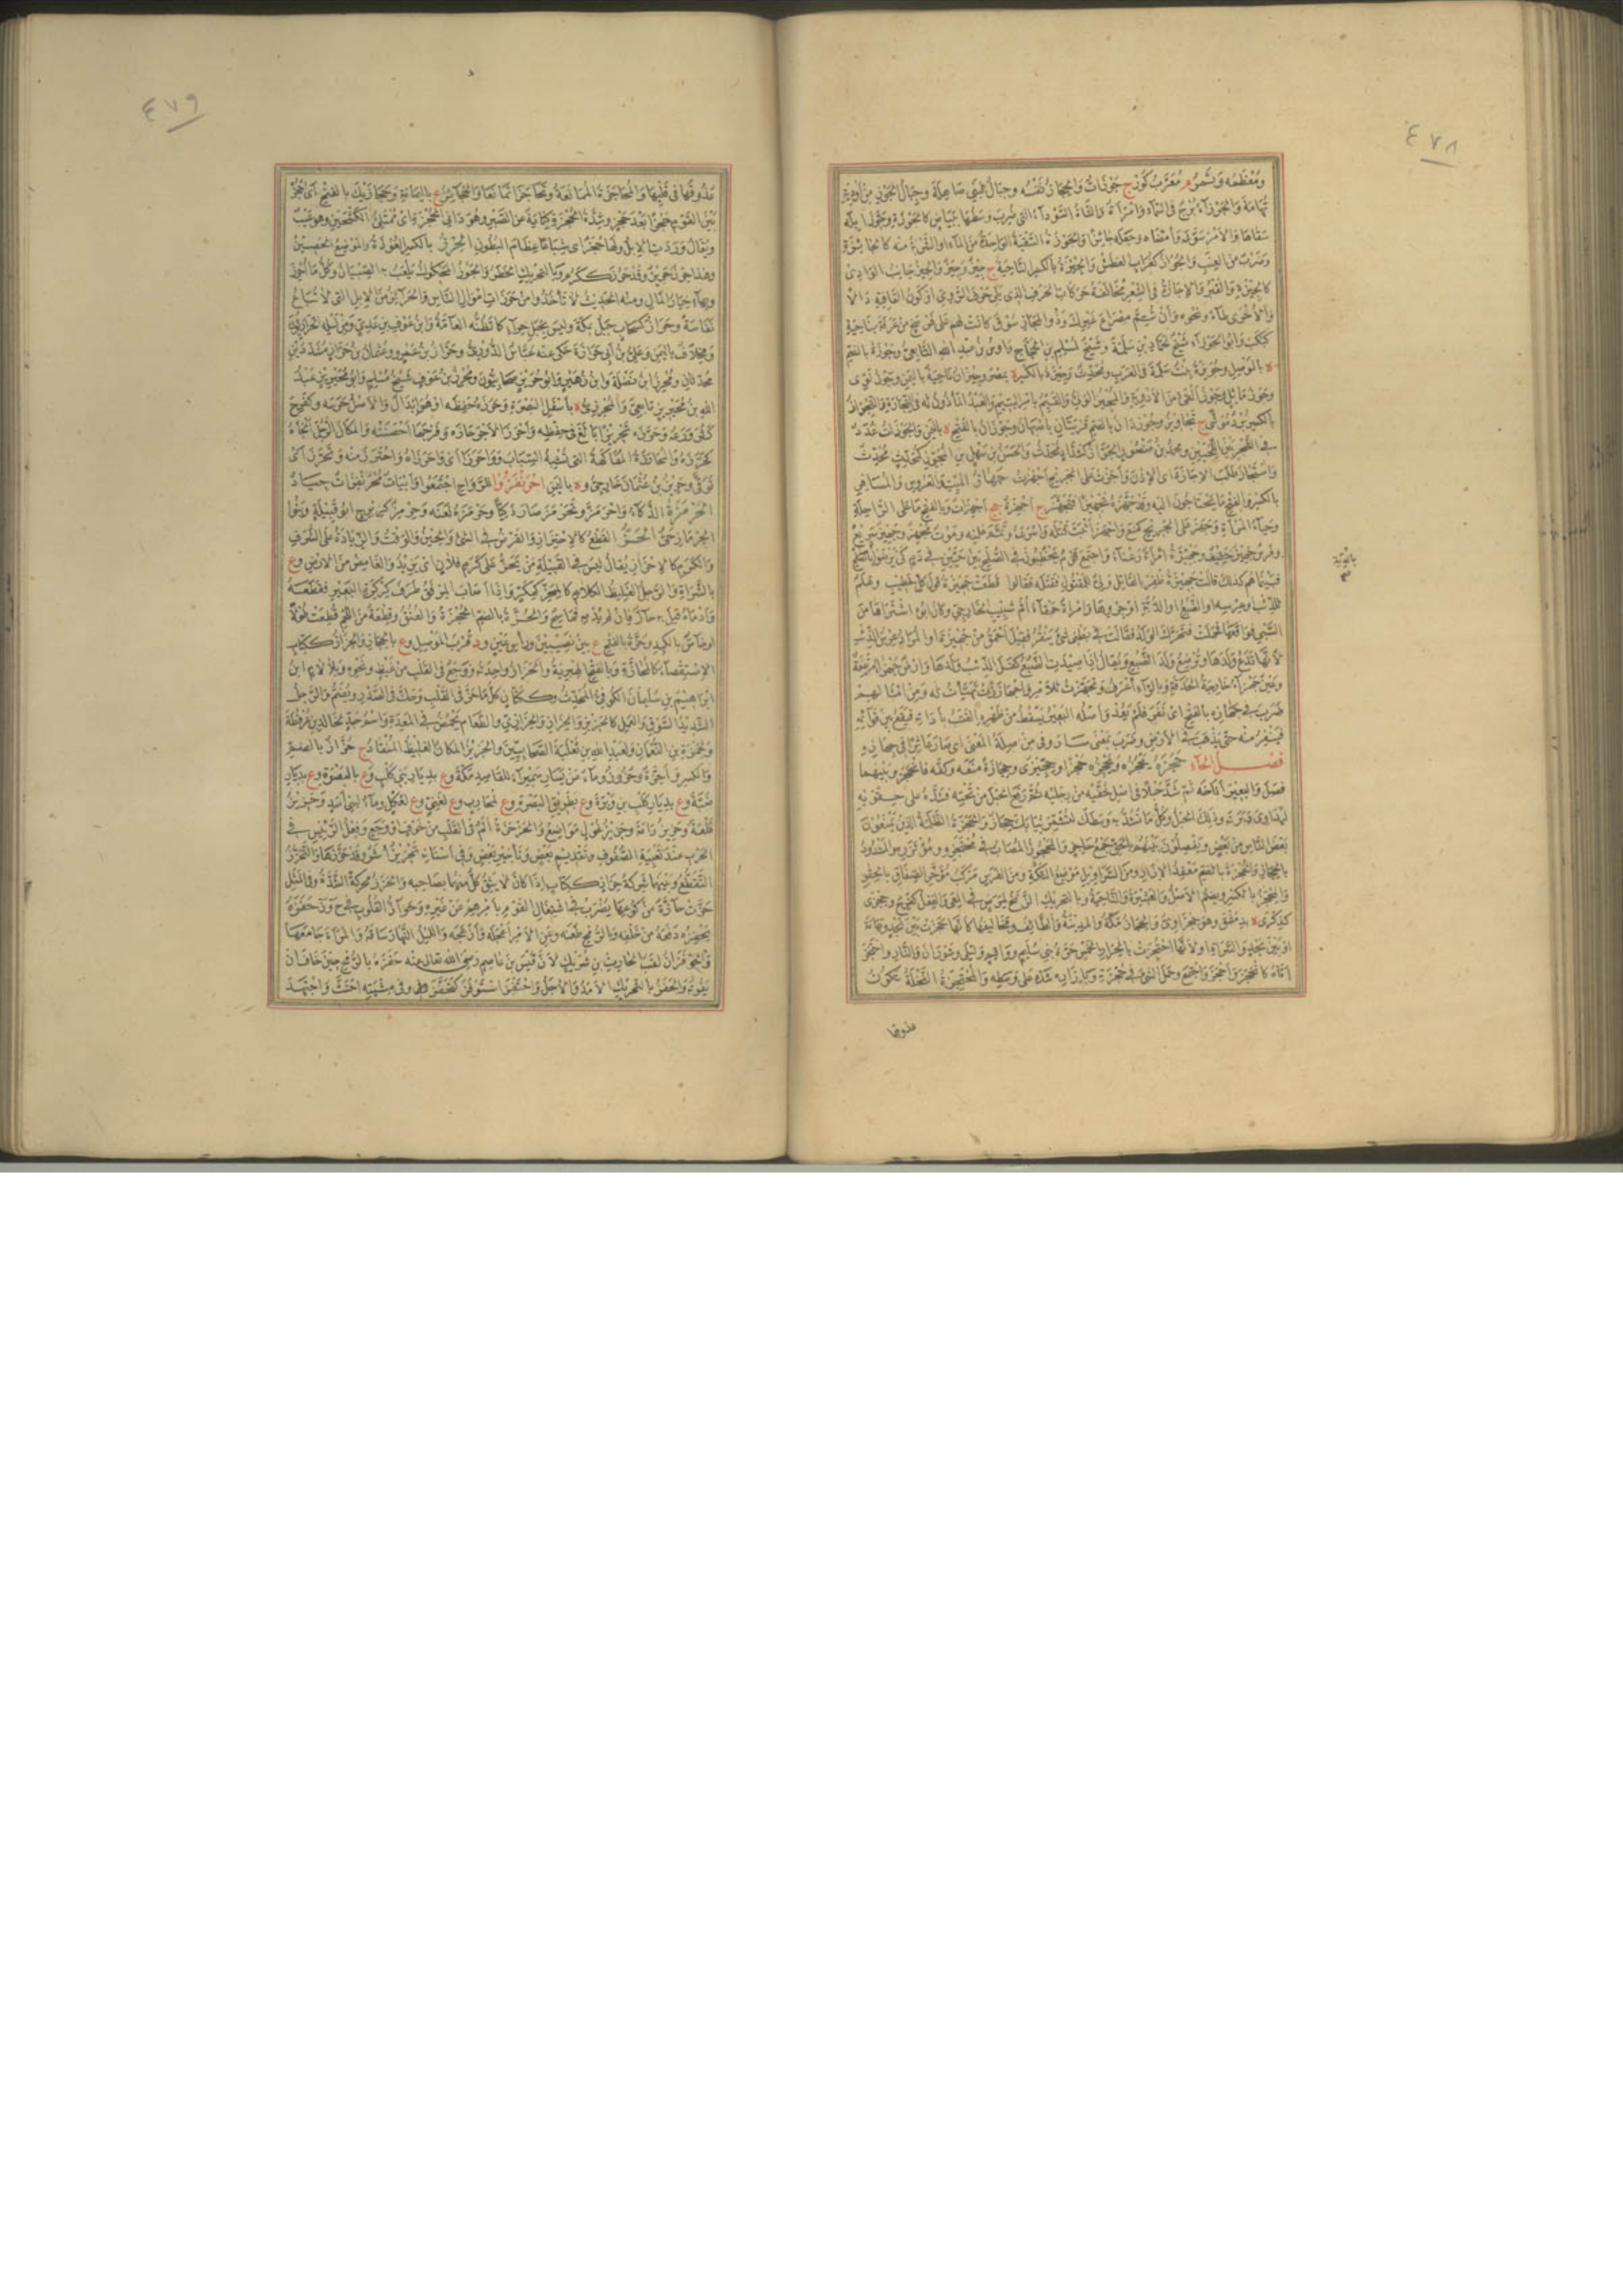 ٤٧٨
ومعظمه وتمر معرب كوز ج جوزات والحجاز نفسه وجبال لبني صاهلة وجبال الجوز من أودية
تهامة والجوزاء برج في السماء وامرأة والشاة السوداء التي ضرب وسطها ببياض كالجوزة وجوز إبله
سقاها والأمر سوغه وأمضاه وجعله جائزا والجوزة السقية الواحدة من الماء أو الشربة منه كالجائزة
وضرب من العنب والجواز كغراب العطش والجيزة بالكسر الناحية ج جيز وجيز والجيز جانب الوادي
كالجيزة والقبر والإجازة في الشعر مخالفة حركات الحرف الذي يلي حرف الروي أو كون القافية طاء
والأخرى دالا ونحوه وأن تتم مصراع غيرك وذو المجاز سوق كانت لهم على فرسخ من عرفة بناحية
كبكب وأبو الجوزاء شيخ لحماد بن سلمة وشيخ لمسلم بن الحجاج وأوس بن عبد الله التابعي وجوزة بالضم
ة بالموصل وجويزة بنت سلمة في العرب ومحدث وجيزة بالكسر ة بمصر وجيزان ناحية باليمن وجوز بوى
وجوز ماثل وجوز القيء من الأدوية والمجيز الولي والقيم بأمر اليتيم والعبد المأذون له في التجارة والتجواز
بالكسر برد موشى ج تجاويز وجوزدان بالضم قريتان بأصبهان وجوزان بالفتح ة باليمن والجوزات غدد
في الشجر بين اللحيين ومحمد بن منصور الجواز كشداد محدث والحسن بن سهل بن المجوز كمحدث محدث
واستجاز طلب الإجازة أي الإذن وأجزت على الجريح أجهزت جهاز الميت والعروس والمسافر
بالكسر والفتح ما يحتاجون إليه وقد جهزه تجهيزا فتجهز ج أجهزة جج أجهزات وبالفتح ما على الراحلة
وحياء المرأة وجهز على الجريح كمنع وأجهز أثبت قتله وأسرعه وتمم عليه وموت مجهز وجهيز سريع
وفرس جهيز خفيف وجهيزة امرأة رعناء واجتمع قوم يخطبون في الصلح بين حيين في دم كي يرضوا بالدية
بالدية صح
فبينما هم كذلك قالت جهيزة ظفر بالقاتل ولي للمقتول فقتله فقالوا قطعت جهيزة قول كل خطيب وعلم
للذئب أو عرسه أو الضبع أو الدبة أو جروها وامرأة حمقاء أم شبيب الخارجي وكان أبو اشتراها من
السبي فواقعها فحملت فتحرك الولد فقالت في بطني شيء ينقز فقيل أحمق من جهيزة أو المراد عرس الذئب
لأنها تدع ولدها وترضع ولد الضبع ويقال إذا صيدت الضبع كفل الذئب ولدها وأرض جهزاء مرتفعة
وعين جهزاء خارجة الحدقة وبالراء أعرف وتجهزت للأمر واجهاززت تهيأت له ومن أمثالهم
ضرب في جهازه بالفتح أي نفر فلم يعد وأصله البعير يسقط عن ظهره القتب بأداته فيقع بين قوائمه
فينفر منه حتى يذهب في الأرض وضرب بمعنى سار وفي من صلة المعنى أي صار عاثرا في جهازه
فصل الحاء حجزه يحجزه ويحجزه حجزا وحجيزى وحجازة منعه وكفه فانحجز وبينهما
فصل والبعير أناخه ثم شد حبلا في أصل خفيه من رجليه ثم رفع الحبل من تحته فشده على حقويه
ليداوى دبرته وذلك الحبل وكل ما تشد به وسطك لتشمر ثيابك حجاز والحجزة الظلمة الذين يمنعون
بعض الناس من بعض ويفصلون بينهم بالحق جمع حاجز والمحجوز المصاب في محتجزه ومؤتزره والمشدود
بالحجاز والحجزة بالضم معقد الإزار ومن السراويل موضع التكة ومن الفرس مركب مؤخر الصفاق بالحقو
والحجز بالكسر ويضم الأصل والعشيرة والناحية وبالتحريك الزنخ لمرض في المعى والفعل كفرح وحجزى
كذكرى ة بدمشق وهو حجزاوي والحجاز مكة والمدينة والطائف ومخاليفها كأنها حجزت بين نجد وتهامة
أو بين نجد والسراة أو لأنها احتجزت بالحرار الخمس حرة بني سليم وواقم وليلى وشوران والنار واحتجز
أتاه كانحجز وأحجز واجتمع وحمل الشيء في حجزته وبإزاره شده على وسطه والمحتجزة النخلة تكون
عذوقها
٤٧٩
عذوقها في قلبها والمحاجزة الممانعة وتحاجزا تمانعا والحجائز ع باليمامة وحجازيك بالفتح أي احجز
بين القوم حجزا بعد حجز وشدة الحجزة كناية عن الصبر وهو دانى الحجزة أي ممتلئ الكشحين وهو عيب
ويقال وردت الإبل ولها حجز أي شباعا عظام البطون الحرز بالكسر العوذة والموضع الحصين
وهذا حرز حريز وقد حرز ككرم وبالتحريك الخطر والجوز المحكوك يلعب به الصبيان وكل ما أحرز
وبهاء خيار المال ومنه الحديث لا تأخذوا من حرزات أموال الناس والحرائز من الإبل التي لا تباع
نفاسة وحراز كسحاب جبل بمكة وليس بجبل حراء كما تظنه العامة وابن عوف بن عدي ومن نسله الحرازيون
ومخلاف باليمن وعلي بن أبي حرازة حكى عنه عباس الدوري وحراز بن عمرو وعثمان بن حراز مشددين
محدثان ومحرز ابن نضلة وابن زهير وأبو حريز صحابيون ومحرز بن عوف شيخ مسلم وأبو محيريز عبد
الله بن محيريز تابعي والمحرزي ة بأسفل البصرة وحرزه حفظه أو هو إبدال والأصل حرسه وكفرح
كثر ورعه وحرزه تحريزا بالغ في حفظه وأحرز الأجر حازه وفرجها أحصنته والمكان الرجل ألجأه
كحرزه والمحارزة المفاكهة التي تشبه السباب وواحرزا أي واحرزاه واحترز منه وتحرز أي
توقى وحريز بن عثمان خارجي وة باليمن احرنفزوا للرواح اجتمعوا وأبيات محرنفزات جياد
الحرمزة الذكاء واحرمز وتحرمز صار ذكيا وحرمزه لعنه وحرمز كزبرج أبو قبيلة وبنوا
الحرماز حي الحز القطع كالاحتزاز والفرض في الشيء والحين والوقت والزيادة على الشرف
والكرم كالإحزاز يقال ليس في القبيلة من يحز على كرم فلان أي يزيد والغامض من الأرض وع
بالسراة والرجل الغليظ الكلام كالمحز كمكر وإذا أصاب المرفق طرف كركرة البعير فقطعه
وأدماه قيل به حاز فإن لم يدمه فماسح والحزة بالضم الحجزة والعنق وقطعة من اللحم قطعت طولا
أو خاص بالكبد وحزة بالفتح ع بين نصيبين ورأس عين ود قرب الموصل وع بالحجاز والحزاز ككتاب
الاستقصاء كالمحازة وبالفتح الهبرية والحزازة واحدته ووجع في القلب من غيظ ونحوه وبلا لام ابن
إبراهيم بن سليمان الكوفي المحدث وككتان كل ما حز في القلب وحك في الصدر ويضم والرجل
الشديد السوق والعمل كالحزيز والحزاز والحزازي والطعام يحمض في المعدة واسم وجد خالد بن عرفطة
ولحمزة بن النعمان ولعبد الله بن ثعلبة الصحابيين والحزيز المكان الغليظ المنقاد ج حزان بالضم
والكسر وأحزة وحزز وماء عن يسار سميراء للقاصد مكة وع بديار بني كلب وع بالبصرة وع بديار
ضبة وع بديار كلب بن وبرة وع بطريق البصرة وع لمحارب وع لغني وع لعكل وماء لبني أسد وحزيز
تلعة وحزيز رامة وحزيز غول مواضع والحزحزة ألم في القلب من خوف أو وجع وفعل الرئيس في
الحرب عند تعبية الصفوف وتقديم بعض وتأخير بعض وفي أسنانه تحزيز أشر وقد حززها والتحزز
التقطع وبينهما شركة حزاز ككتاب إذا كان لا يثق كل منهما بصاحبه والحزز محركة الشدة وفي المثل
حزت حازة من كوعها يضرب في اشتغال القوم بأمرهم عن غيره وحواز القلوب في ح و ز حفزه
يحفزه دفعه من خلفه وبالرمح طعنه وعن الأمر أعجله وأزعجه والليل النهار ساقه والمرأة جامعها
والحوفزان لقب الحارث بن شريك لأن قيس بن عاصم رضي الله تعالى عنه حفزه بالرمح حين خاف أن
يفوته والحفز بالتحريك الأمد والأجل واحتفز استوفز كتحفز وفي مشيته احتث واجتهد